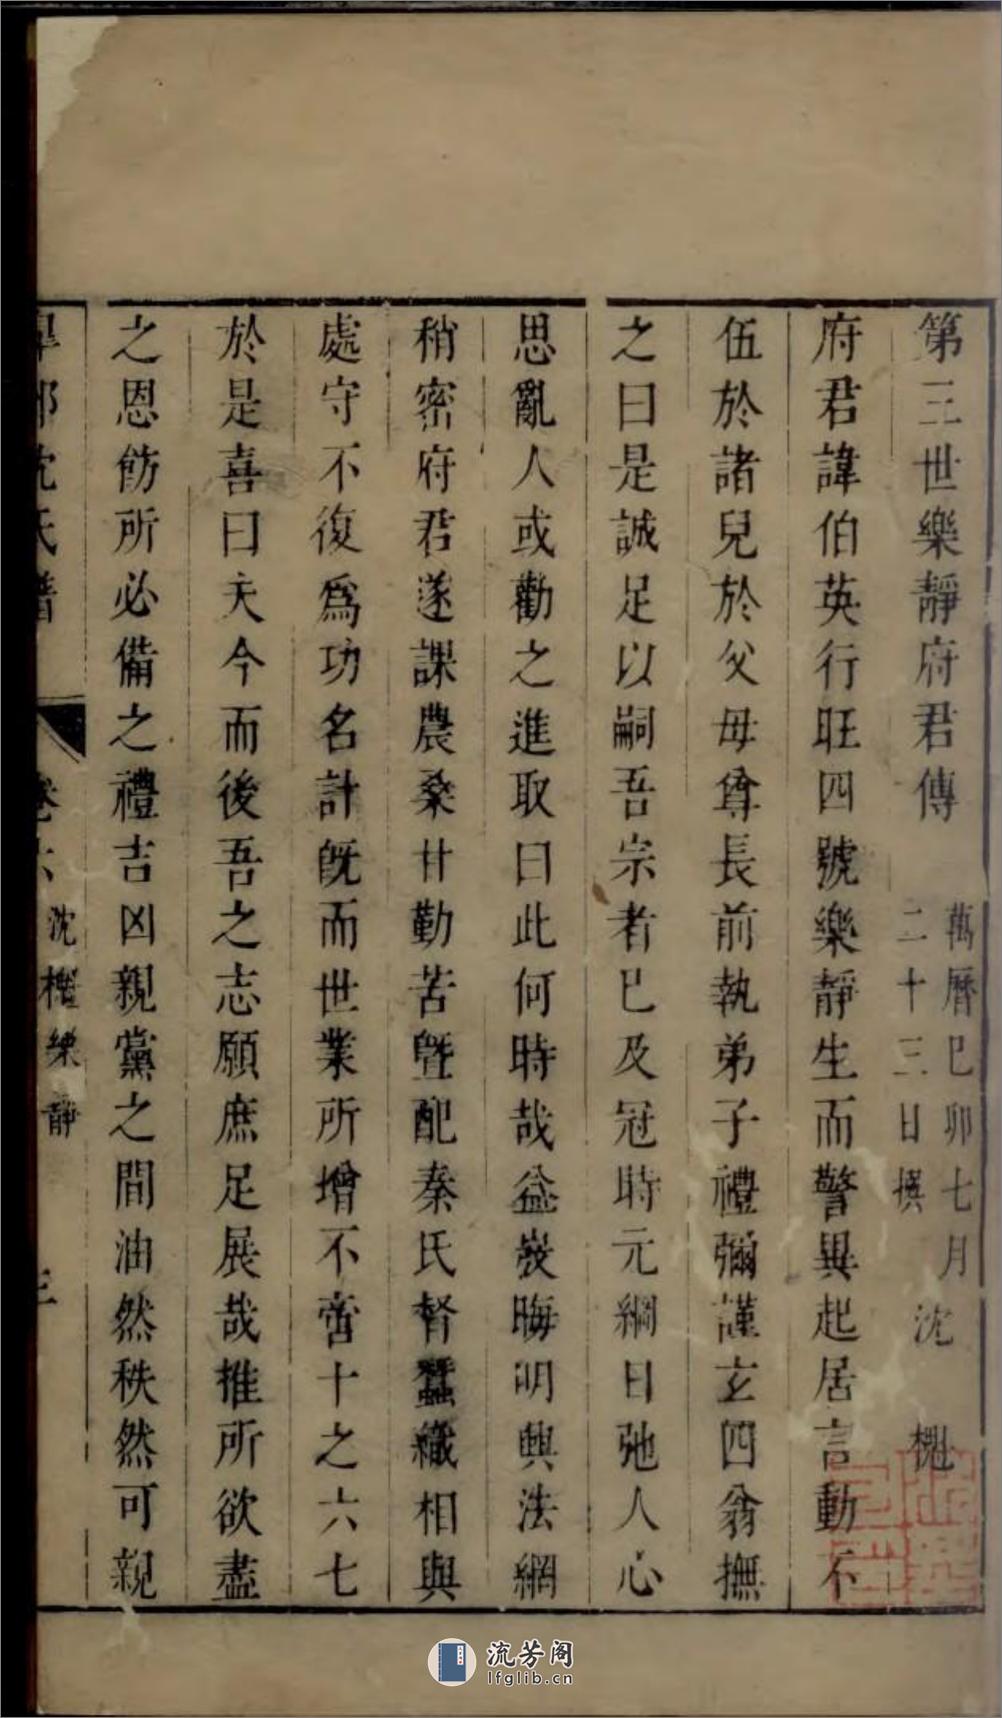 第三世樂靜府君傳
萬曆己卯七月
二十三日撰
沈
府君諱伯英行旺四號樂靜生而警異起居言動不
伍於諸兒於父母尊長前執弟子禮彌謹玄四翁撫
之曰是誠足以嗣吾宗者已及冠時元綱日弛人心
思亂人或勸之進取曰此何時哉益裝晦明興法網
稍密府君遂課農桑廿勤苦曁配秦氏督蠶織相與
處守不復爲功名計旣而世業所增不啻十之六七
於是喜曰夫今而後吾之志願庶足展哉推所欲盡
之恩飭所必備之禮吉凶親黨之間油然秩然可親
沈氏譜
卷六
沈 樂靜
三
流芳阁
lfglib.cn